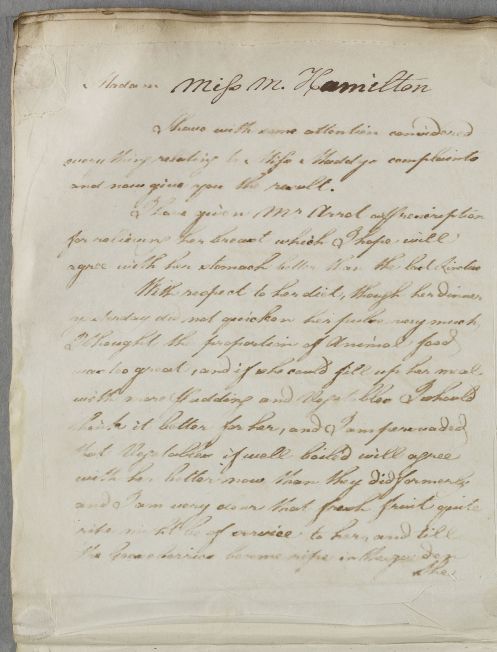 Madam Miss M. Hamilton
I have with some attention considered
every thing relating to Miss Haddy's complaints
and now give you the result.
I have given Mr Arrot a Prescription
for relieving her breast which I hope will
agree with her stomach better than the last Linctus
With respect to her diet, though her dinner
yesterday did not quicken her pulse very much,
I thought the proportion of Animal food
was too great, and if she could fill up her meal
with more Pudding and Vegetables I should
think it better for her, and I am perswaded
that Vegetables if well boiled will agree
with her better now than they did formerly
and I am very sure that fresh fruit quite
ripe might be of service to her, and till
the become ripe in the garden
she